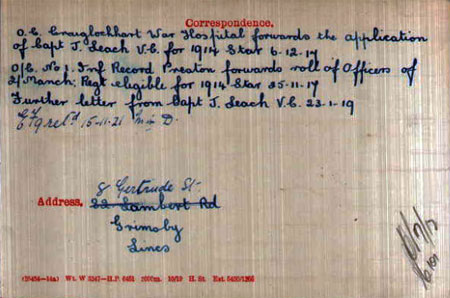 Correspondence.
O.C. Craiglockhart War Hospital forwards the application
of Capt J. Leach V.C. for 1914 Star 6.12.17
O/C. No 1. Inf Record Preston forwards roll of Officers of
2/Manch: Regt eligible for 1914 Star 25-11-17
Further letter from Capt J. Leach V.C. 23.1-19
15-11-21 D.
8 Gertrude St.
Address. 22 Lambert Rd
Grimsby
Lines
H.P. 6451 5000m. 10/19 H. St.